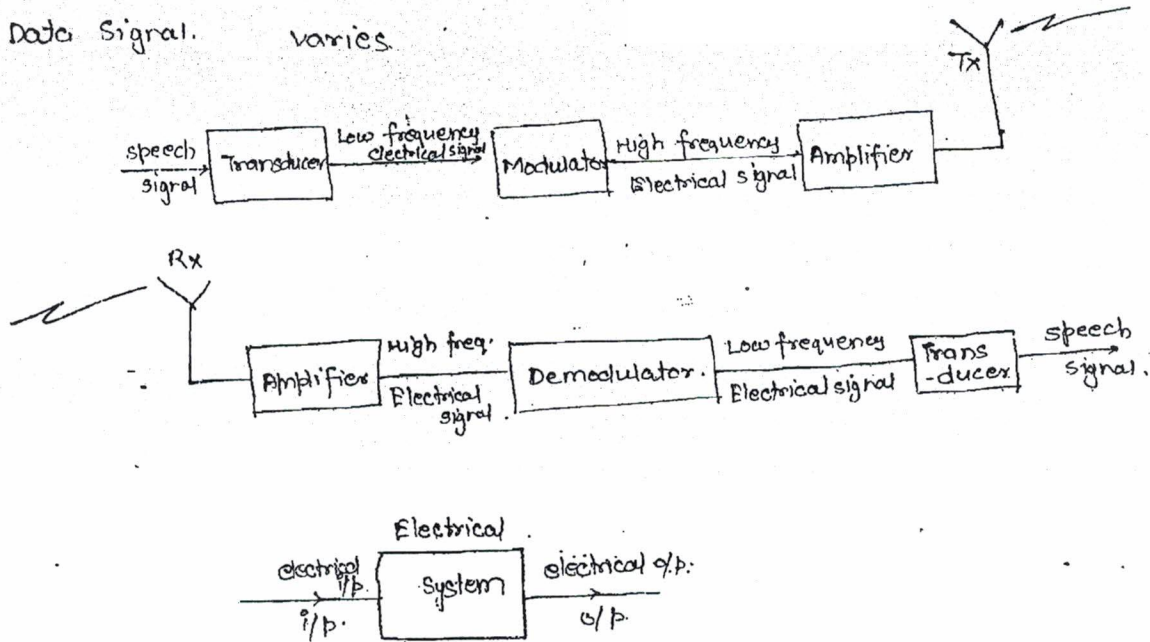 Data Signal. varies.
Tx
speech signal
Transducer
Low frequency
electrical signal
Modulator
High frequency
Electrical signal
Amplifier
Rx
Amplifier
High freq.
Electrical signal.
Demodulator.
Low frequency
Electrical signal
Trans
-ducer
speech
signal.
Electrical
electrical i/p.
i/p.
System
electrical o/p.
o/p.